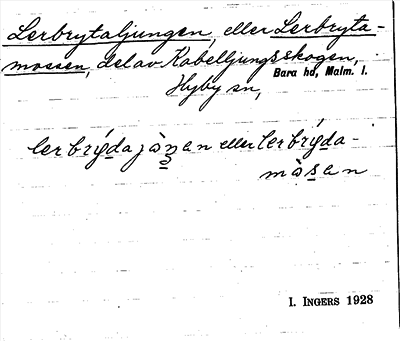 Lerbrytaljungen, eller Lerbryta-
mossen, del av Kabelljungsskogen,
Bara hd, Malm. l.
Hyby sn,
lerbrýdajàŋan eller lerbrýda-
màsen
I. INGERS 1928